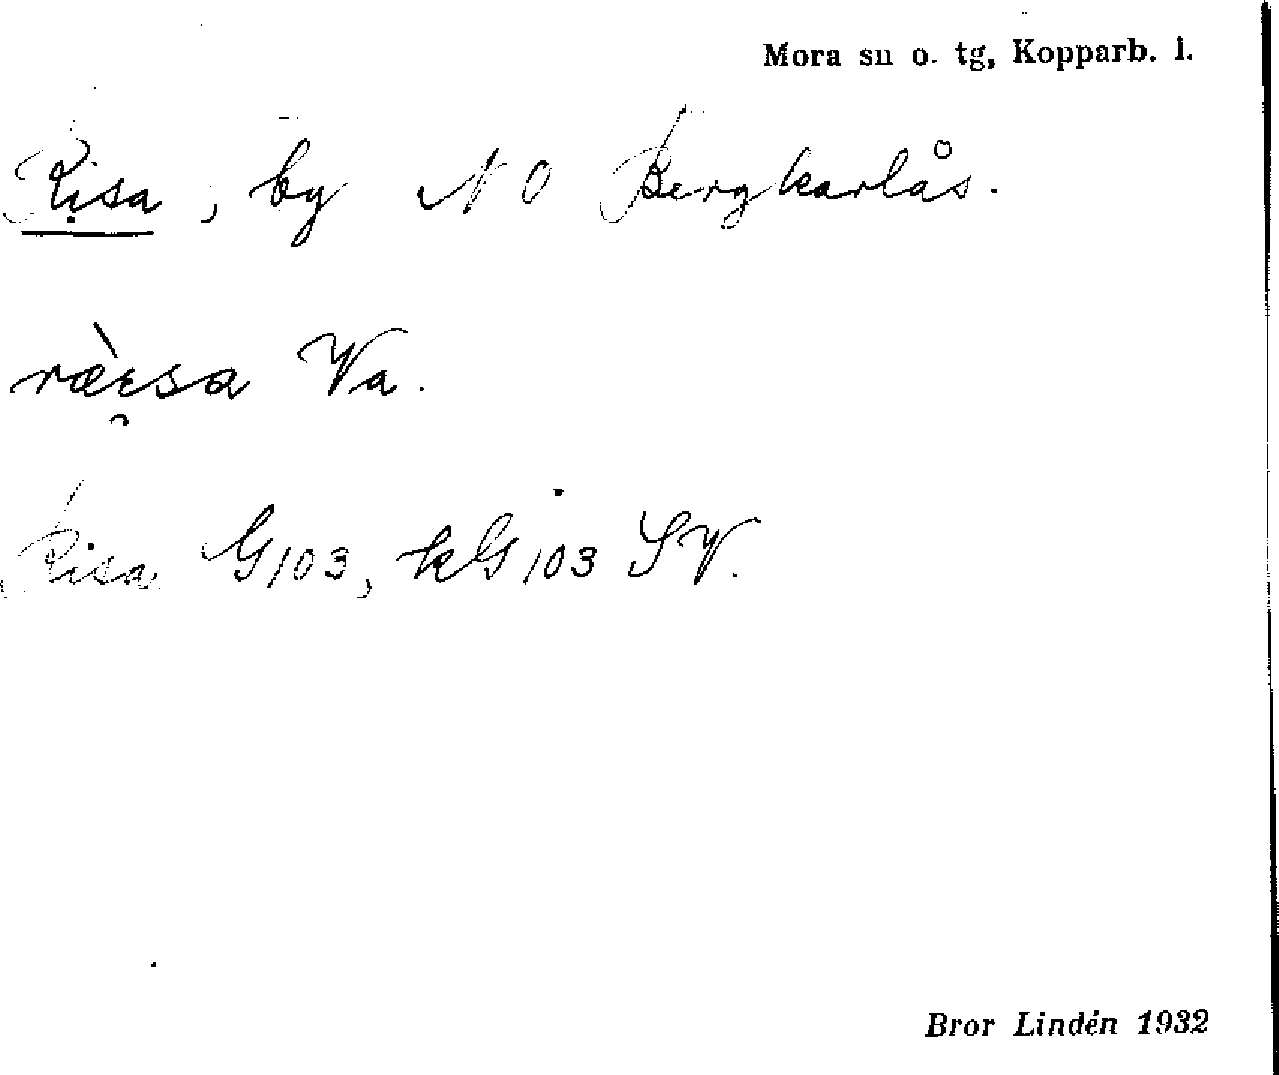 Mora sn o. tg, Kopparb. l.
Risa, by NO Bergkarlås.
ræ̀ɛ̯sa Va.
Risa G103, kG103 SV.
Bror Lindén 1932